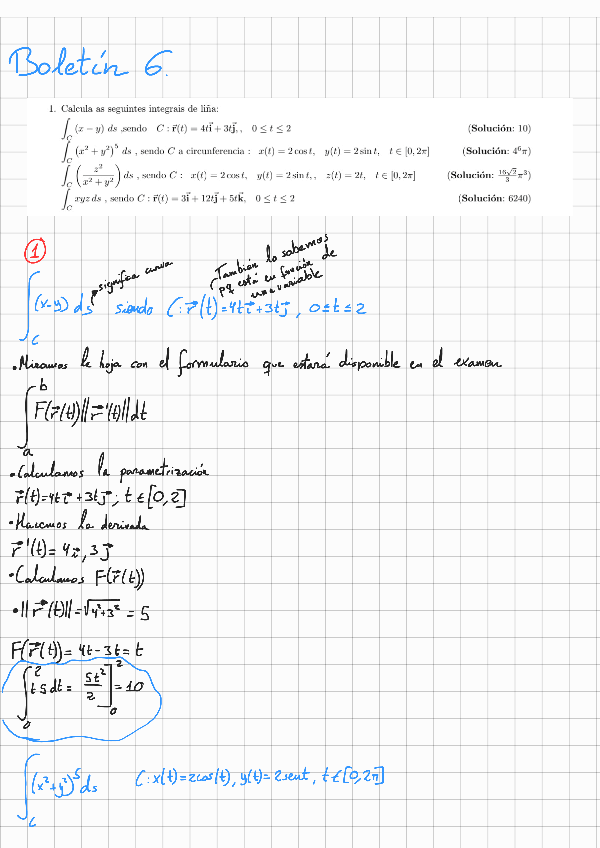 Boletín 6.
1. Calcula as seguintes integrais de liña:
∫_C (x − y) ds ,sendo C : r⃗(t) = 4ti⃗ + 3tj⃗, , 0 ≤ t ≤ 2 (Solución: 10)
∫_C (x² + y²)⁵ ds , sendo C a circunferencia : x(t) = 2 cos t, y(t) = 2 sin t, t ∈ [0, 2π] (Solución: 4⁶π)
∫_C (z²/(x² + y²)) ds , sendo C : x(t) = 2 cos t, y(t) = 2 sin t, , z(t) = 2t, t ∈ [0, 2π] (Solución: 16√2/3 π³)
∫_C xyz ds , sendo C : r⃗(t) = 3i⃗ + 12tj⃗ + 5tk⃗, 0 ≤ t ≤ 2 (Solución: 6240)
①
significa curva
También lo sabemos
pq está en función de
una variable
∫_C (x-y) ds siendo C: r⃗(t)=4ti⃗+3tj⃗, 0≤t≤2
•Miramos la hoja con el formulario que estará disponible en el examen
∫_a^b F(r⃗(t))||r⃗'(t)||dt
•Calculamos la parametrización
r⃗(t)=4ti⃗+3tj⃗; t∈[0,2]
•Hacemos la derivada
r⃗'(t)=4i⃗,3j⃗
•Calculamos F(r⃗(t))
•||r⃗'(t)||=√4²+3² = 5
F(r⃗(t))= 4t-3t= t
∫_0^2 t5dt = 5t²/2]_0^2 = 10
∫_C (x²+y²)⁵ds C:x(t)=2cos(t), y(t)=2sent, t∈[0,2π]